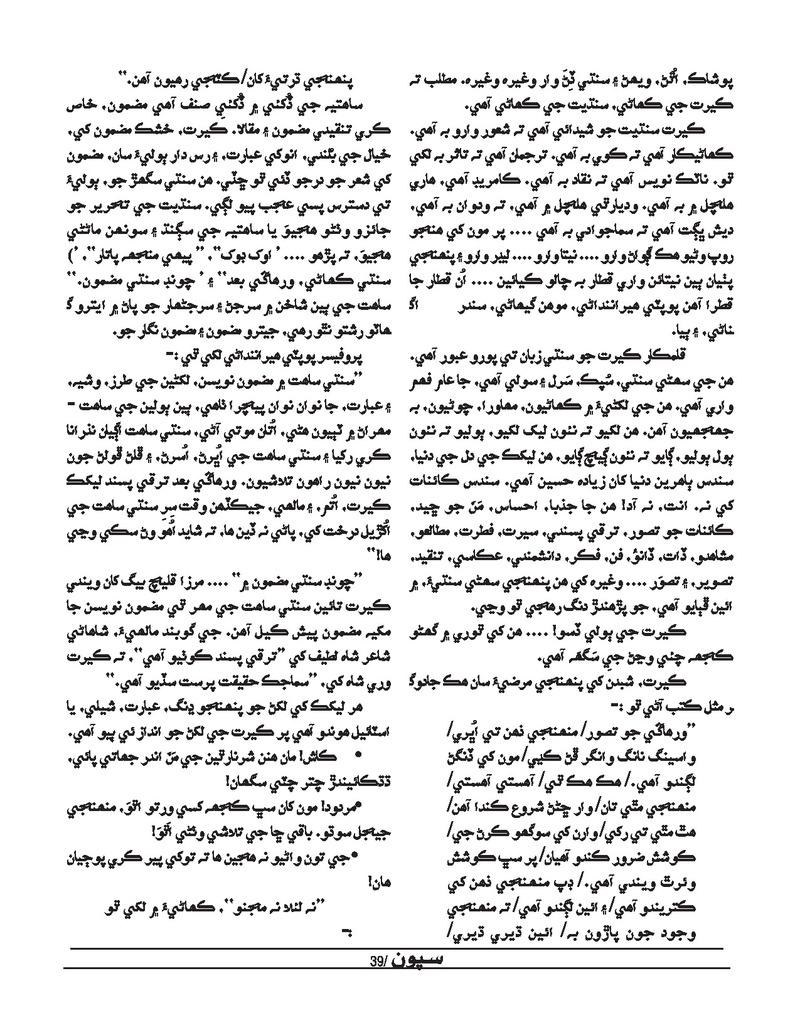 پوشاڪ، اُٿڻ، ويھڻ ۽ سنڌي ڏِڻَ وار وغيره وغيره. مطلب ته
ڪيرت جي ڪھاڻي، سنڌيت جي ڪھاڻي آھي.
ڪيرت سنڌيت جو شيدائي آھي ته شعور وارو به آھي.
ڪھاڻيڪار آھي ته ڪوي به آھي. ترجمان آھي ته تاثر به لکي
ٿو. ناٽڪ نويس آھي ته نقاد به آھي. ڪامريڊ آھي، ھاري
ھلچل ۾ به آھي. وديارٿي ھلچل ۾ آھي، ته ودوان به آھي،
ديش ڀڳت آھي ته سماجوادي به آھي .... پر مون کي ھنجو
روپ وڻيو ھڪ اڳواڻ وارو .... نيتا وارو .... ليڊر وارو ۽ پنھنجي
پٺيان ٻين نيتائن واري قطار به چالو ڪيائين .... اُن قطار جا
قطرا آھن پوپٽي ھيراننداڻي، موھن گيھاڻي، سندر اڳ
ناڻي، ۽ ٻيا.
قلمڪار ڪيرت جو سنڌي زبان تي پورو عبور آھي.
ھن جي سھڻي سنڌي، سُپڪ، سَرل ۽ سولي آھي، جا عام فھم
واري آھي. ھن جي لکڻيءَ ۾ ڪھاڻيون، محاورا، چوڻيون، به
جھجھيون آھن. ھن لکيو ته نئون ليک لکيو، ٻوليو ته نئون
ٻول ٻوليو، ڳايو ته نئون ڳيچ ڳايو، ھن ليکڪ جي دل جي دنيا،
سندس ٻاھرين دنيا کان زياده حسين آھي. سندس ڪائنات
کي نه. انت، نه آد! ھن جا جذبا، احساس، مَنَ جو ڇيد،
ڪائنات جو تصور، ترقي پسندي، سيرت، فطرت، مطالعو،
مشاھدو، ڏات، ڏانءُ، فن، فڪر، دانشمندي، عڪاسي، تنقيد،
تصوير، ۽ تصوَر .... وغيره کي ھن پنھنجي سھڻي سنڌيءَ، ۾
ائين ڦٻايو آھي، جو پڙھندڙ دنگ رھجي ٿو وڃي.
ڪيرت جي ٻولي ڏسو! .... ھن کي ٿوري ۾ گھڻو
ڪجھه چئي وڃڻ جي سَگهه آھي.
ڪيرت، شبدن کي پنھنجي مرضيءَ سان ھڪ جادوگ
ر مثل ڪتب آڻي ٿو :-
”ورھاڱي جو تصور/ منھنجي ذھن تي اُڀري/
واسينگ نانگ وانگر ڦڻ ڪڍي/ مون کي ڏنگڻ
لڳندو آھي./ ھڪ ھڪ ٿي/ آھستي آھستي/
منھنجي مٿي تان/ وار ڇڻڻ شروع ڪندا آھن/
ھٿ مٿي تي رکي/ وارن کي سوگھو ڪرڻ جي/
ڪوشش ضرور ڪندو آھيان/ پر سڀ ڪوشش
وئرٿ ويندي آھي./ ڊپ منھنجي ذھن کي
ڪتريندو آھي/ ۽ ائين لڳندو آھي/ ته منھنجي
وجود جون پاڙون به/ ائين ڌيري ڌيري/
پنھنجي ڌرتيءَ کان/ ڪٽجي رھيون آھن.“
ساھتيه جي ڏکڻي ۾ ڏکڻي صنف آھي مضمون، خاص
ڪري تنقيدي مضمون ۽ مقالا. ڪيرت، خشڪ مضمون کي،
خيال جي بلندي، انوکي عبارت، ۽ رس دار ٻوليءَ سان، مضمون
کي شعر جو درجو ڏئي ٿو ڇڏي. ھن سنڌي سگھڙ جو، ٻوليءَ
تي دسترس پسي عجب پيو لڳي. سنڌيت جي تحرير جو
جائزو وٺڻو ھجيوَ يا ساھتيه جي سڳنڌ ۽ سونھن ماڻڻي
ھجيوَ، ته پڙھو .... ’اوک ٻوک“، ”پيھي منجھه پاتار“، ’)
سنڌي ڪھاڻي، ورھاڱي بعد“ ۽ ’چونڊ سنڌي مضمون.“
ساھت جي ٻين شاخن ۾ سرجڻ ۽ سرجڻھار جو پاڻ ۾ ايترو گ
ھاٽو رشتو نٿو رھي، جيترو مضمون ۽ مضمون نگار جو.
پروفيسر پوپٽي ھيراننداڻي لکي ٿي :-
”سنڌي ساھت ۾ مضمون نويسن، لکڻين جي طرز، وشيه،
۽ عبارت، جا نوان نوان پيچرا ڏاھي، ٻين ٻولين جي ساھت -
مھراڻ ۾ ٽٻيون ھڻي، اُتان موتي آڻي، سنڌي ساھت اڳيان نذرانا
ڪري رکيا ۽ سنڌي ساھت جي اُڀرڻ، اُسرڻ، ۽ ڦلڻ ڦولڻ جون
نيون نيون راھون تلاشيون. ورھاڱي بعد ترقي پسند ليکڪ
ڪيرت، اُتم، ۽ مالھي، جيڪڏھن وقت سرِ سنڌي ساھت جي
اُکڙيل درخت کي، پاڻي نه ڏين ھا، ته شايد اُھو وڻ سڪي وڃي
ھا!“
”چونڊ سنڌي مضمون ۾“ .... مرزا قليچ بيگ کان ويندي
ڪيرت تائين سنڌي ساھت جي مھر ٿي مضمون نويسن جا
مکيه مضمون پيش ڪيل آھن. جي گوبند مالھيءَ، شاھاڻي
شاعر شاھ لطيف کي ”ترقي پسند ڪوٺيو آھي“، ته ڪيرت
وري شاھ کي، ”سماجڪ حقيقت پرست سڏيو آھي.“
ھر ليکڪ کي لکڻ جو پنھنجو ڍنگ، عبارت، شيلي، يا
اسٽائيل ھوندو آھي پر ڪيرت جي لکڻ جو انداز ئي ٻيو آھي.
• ڪاش! مان ھنن شرنارٿين جي مَنَ اندر جھاتي پائي،
ڌڌڪائيندڙ چتر چٽي سگھان!
•مردود! مون کان سڀ ڪجھه کسي ورتو اٿوَ، منھنجي
جيجل سوڌو. باقي ڇا جي تلاشي وٺڻي اٿوَ!
•جي تون واڻيو نه ھجين ھا ته توکي پير ڪري پوڄيان
ھان!
”نه لئلا نه مجنو“، ڪھاڻيءَ ۾ لکي ٿو
:-
سپون /39